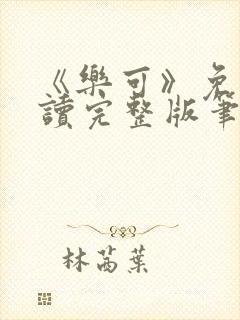 《樂可》免
讀完整版筆
林茜葉